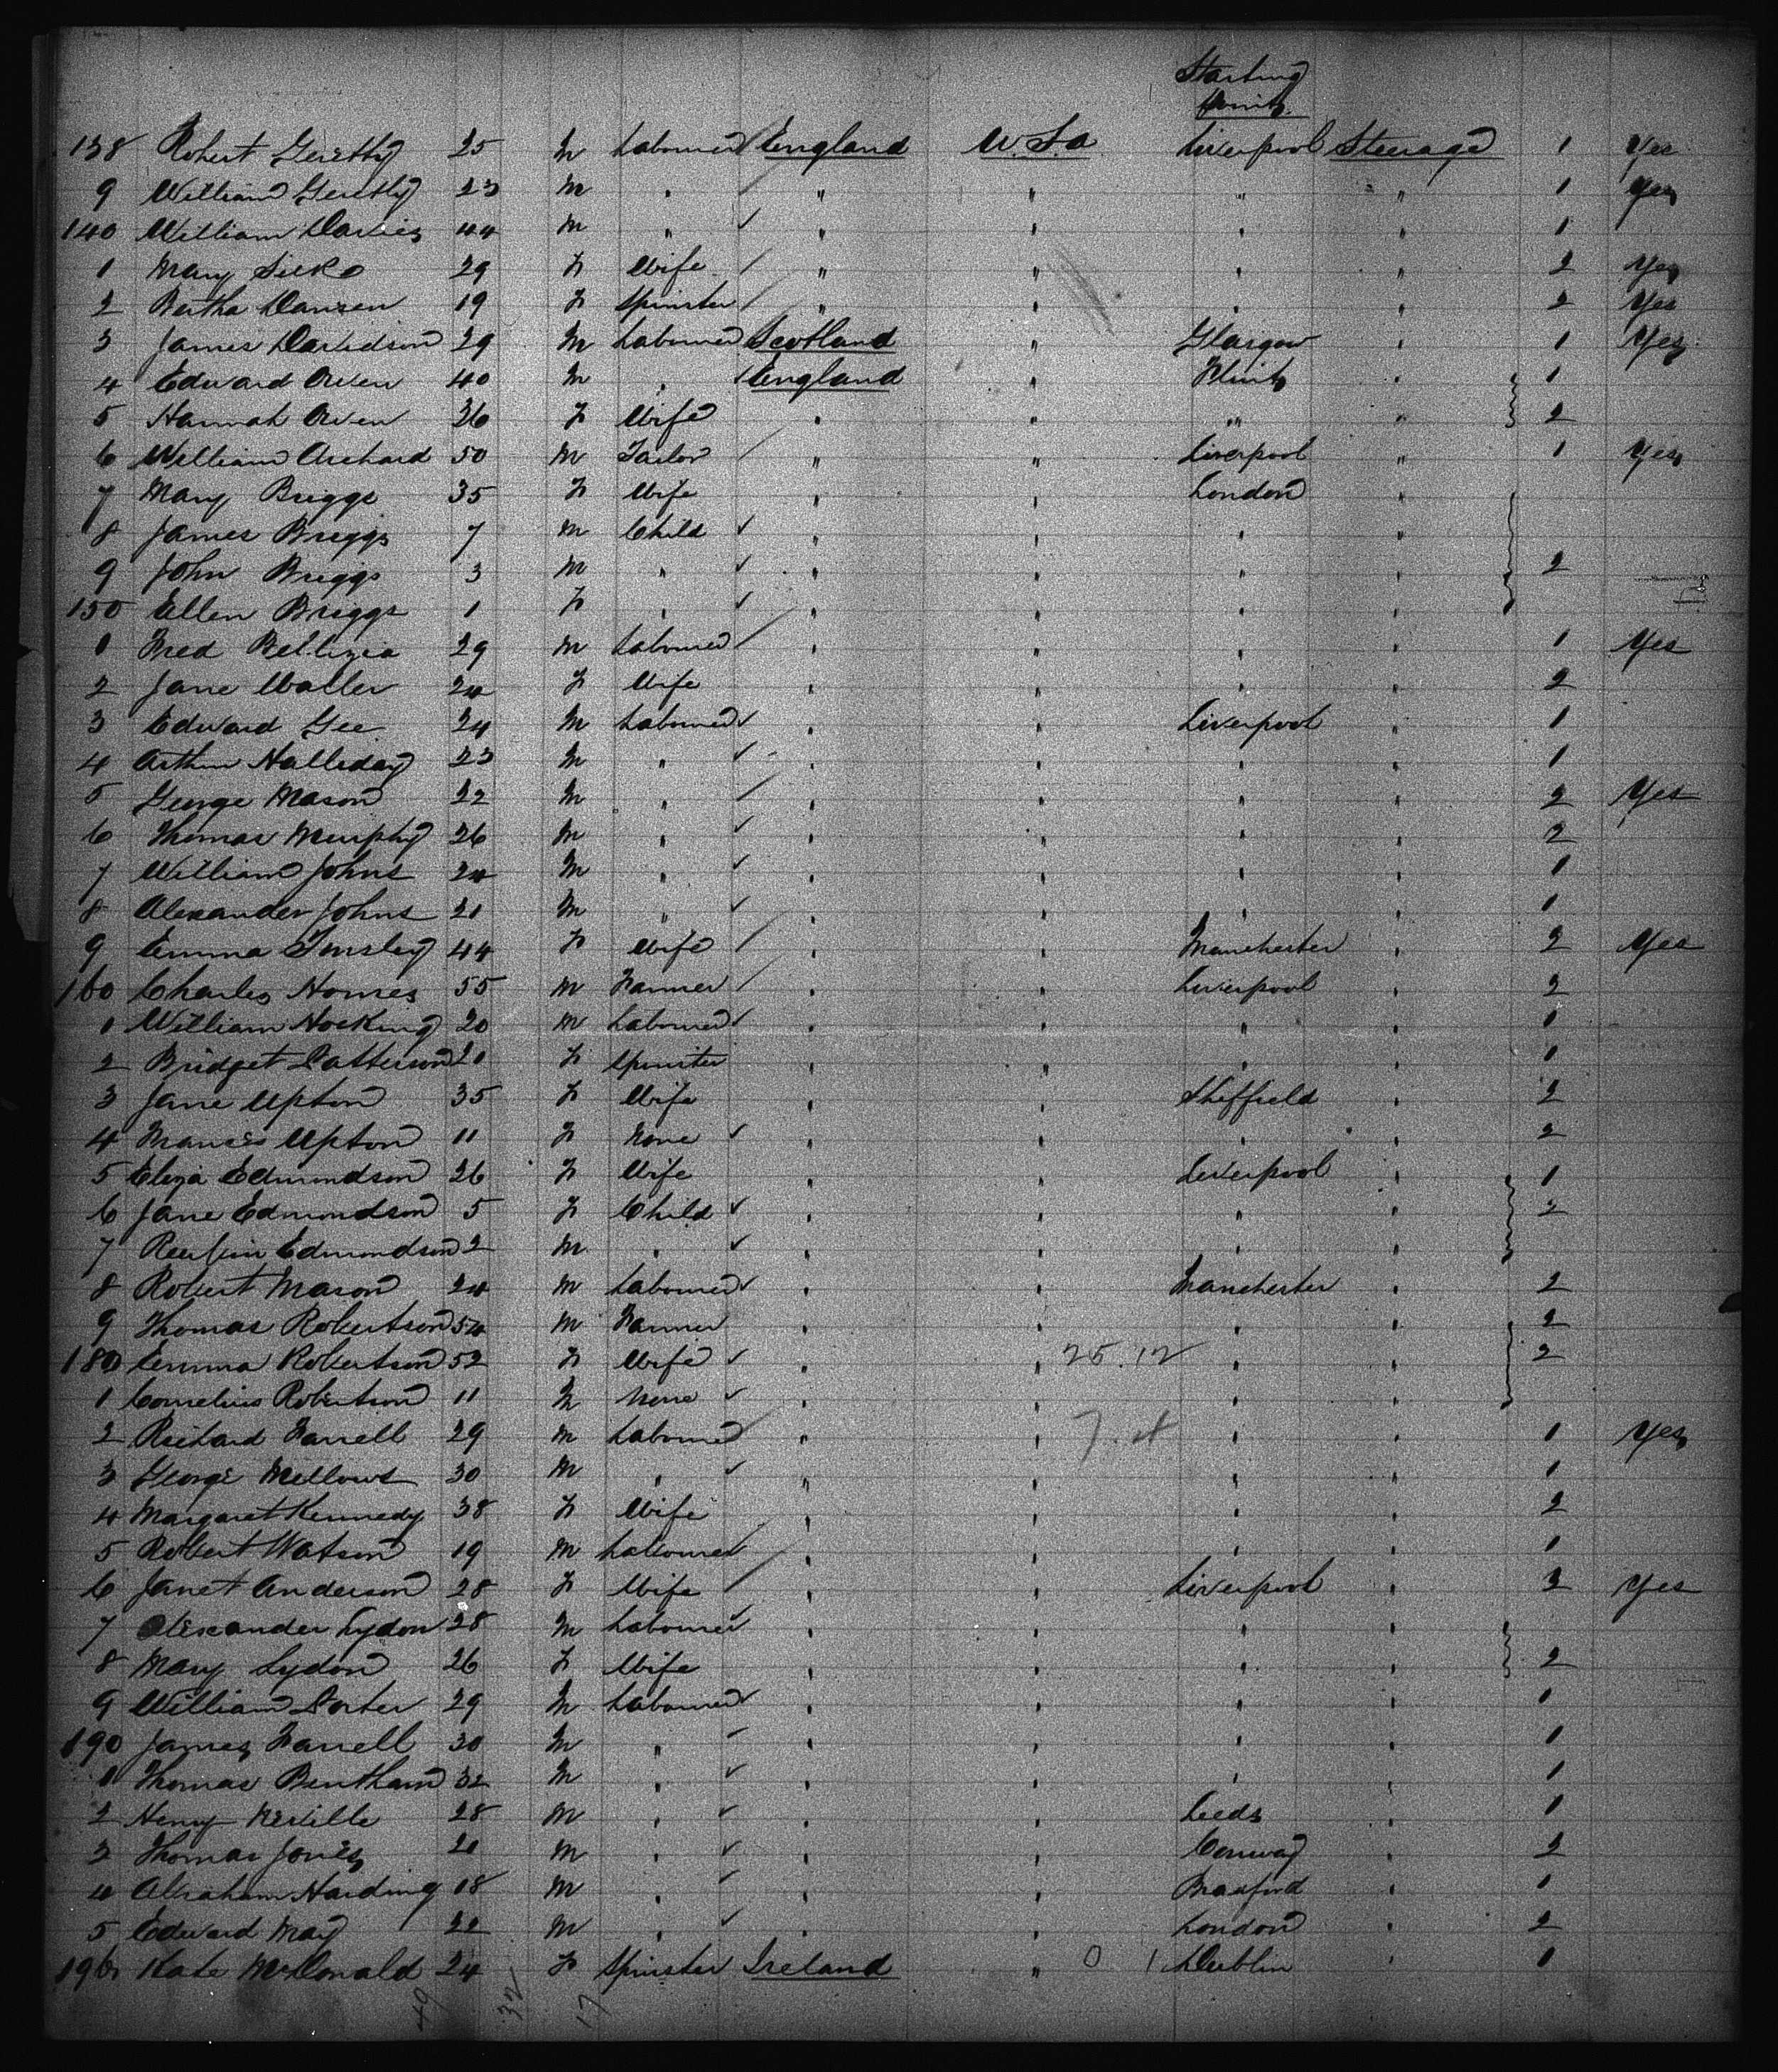 Starting
Point
138 Robert Gerstly 25 M Labourer England U.S.A Liverpool Steerage 1 Yes
9 William Gerstly 23 M " " " " " 1 Yes
140 William Davies 44 M " " " " " 1
1 Mary 29 F Wife " " " " 2 Yes
2 Bertha Dansen 19 F Spinster " " " " 2 Yes
3 James Davidson 29 M Labourer Scotland " Glasgow " 1 Yes
4 Edward Owen 40 M " England " Flint " 1
5 Hannah Owen 36 F Wife " " " " 2
6 William Orchard 50 M Tailor " " Liverpool " 1 Yes
7 Mary Briggs 35 F Wife " " London "
8 James Briggs 7 M Child " " " "
9 John Briggs 3 M " " " " " 2
150 Ellen Briggs 1 F " " " " "
1 Fred 29 M Labourer " " " " 1 Yes
2 Jane Waller 24 F Wife " " " " 2
3 Edward Gee 24 M Labourer " " Liverpool " 1
4 Arthur Halliday 23 M " " " " " 1
5 George Mason 22 M " " " " " 2 Yes
6 Thomas Murphy 26 M " " " " " 2
7 William Johns 24 M " " " " " 1
8 Alexander Johns 21 M " " " " " 1
9 Emma Tinsley 44 F Wife " " Manchester " 2 Yes
160 Charles Homes 55 M Farmer " " Liverpool " 2
1 William Hocking 20 M Labourer " " " " 1
2 Bridget Patterson 21 F Spinster " " " " 1
3 Jane Upton 35 F Wife " " Sheffield " 2
4 Francis Upton 11 F None " " " " 2
5 Eliza Edmondson 26 F Wife " " Liverpool " 1
6 Jane Edmondson 5 F Child " " " " 2
7 Edmondson 2 M " " " " "
8 Robert Mason 24 M Labourer " " Manchester " 2
9 Thomas Robertson 54 M Farmer " " " " 2
180 Emma Robertson 52 F Wife " " 25.12 " " 2
1 Cornelius Robertson 11 M None " " " "
2 Richard Farrell 29 M Labourer " " " " 1 Yes
3 George Mellows 30 M " " " " " 1
4 Margaret Kennedy 38 F Wife " " " " 2
5 Robert Watson 19 M Labourer " " " " 1
6 Janet Anderson 28 F Wife " " Liverpool " 2 Yes
7 Alexander Lydon 28 M Labourer " " " "
8 Mary Lydon 26 F Wife " " " " 2
9 William Porter 29 M Labourer " " " " 1
190 James Farrell 30 M " " " " " 1
1 Thomas Bentham 32 M " " " " " 1
2 Henry Neville 28 M " " " Leeds " 1
3 Thomas Jones 21 M " " " Conway " 2
4 Abraham Harding 18 M " " " Bradford " 1
5 Edward May 22 M " " " London " 2
196 Kate McDonald 24 F Spinster Ireland " 0 1 Dublin " 1
49 32 17